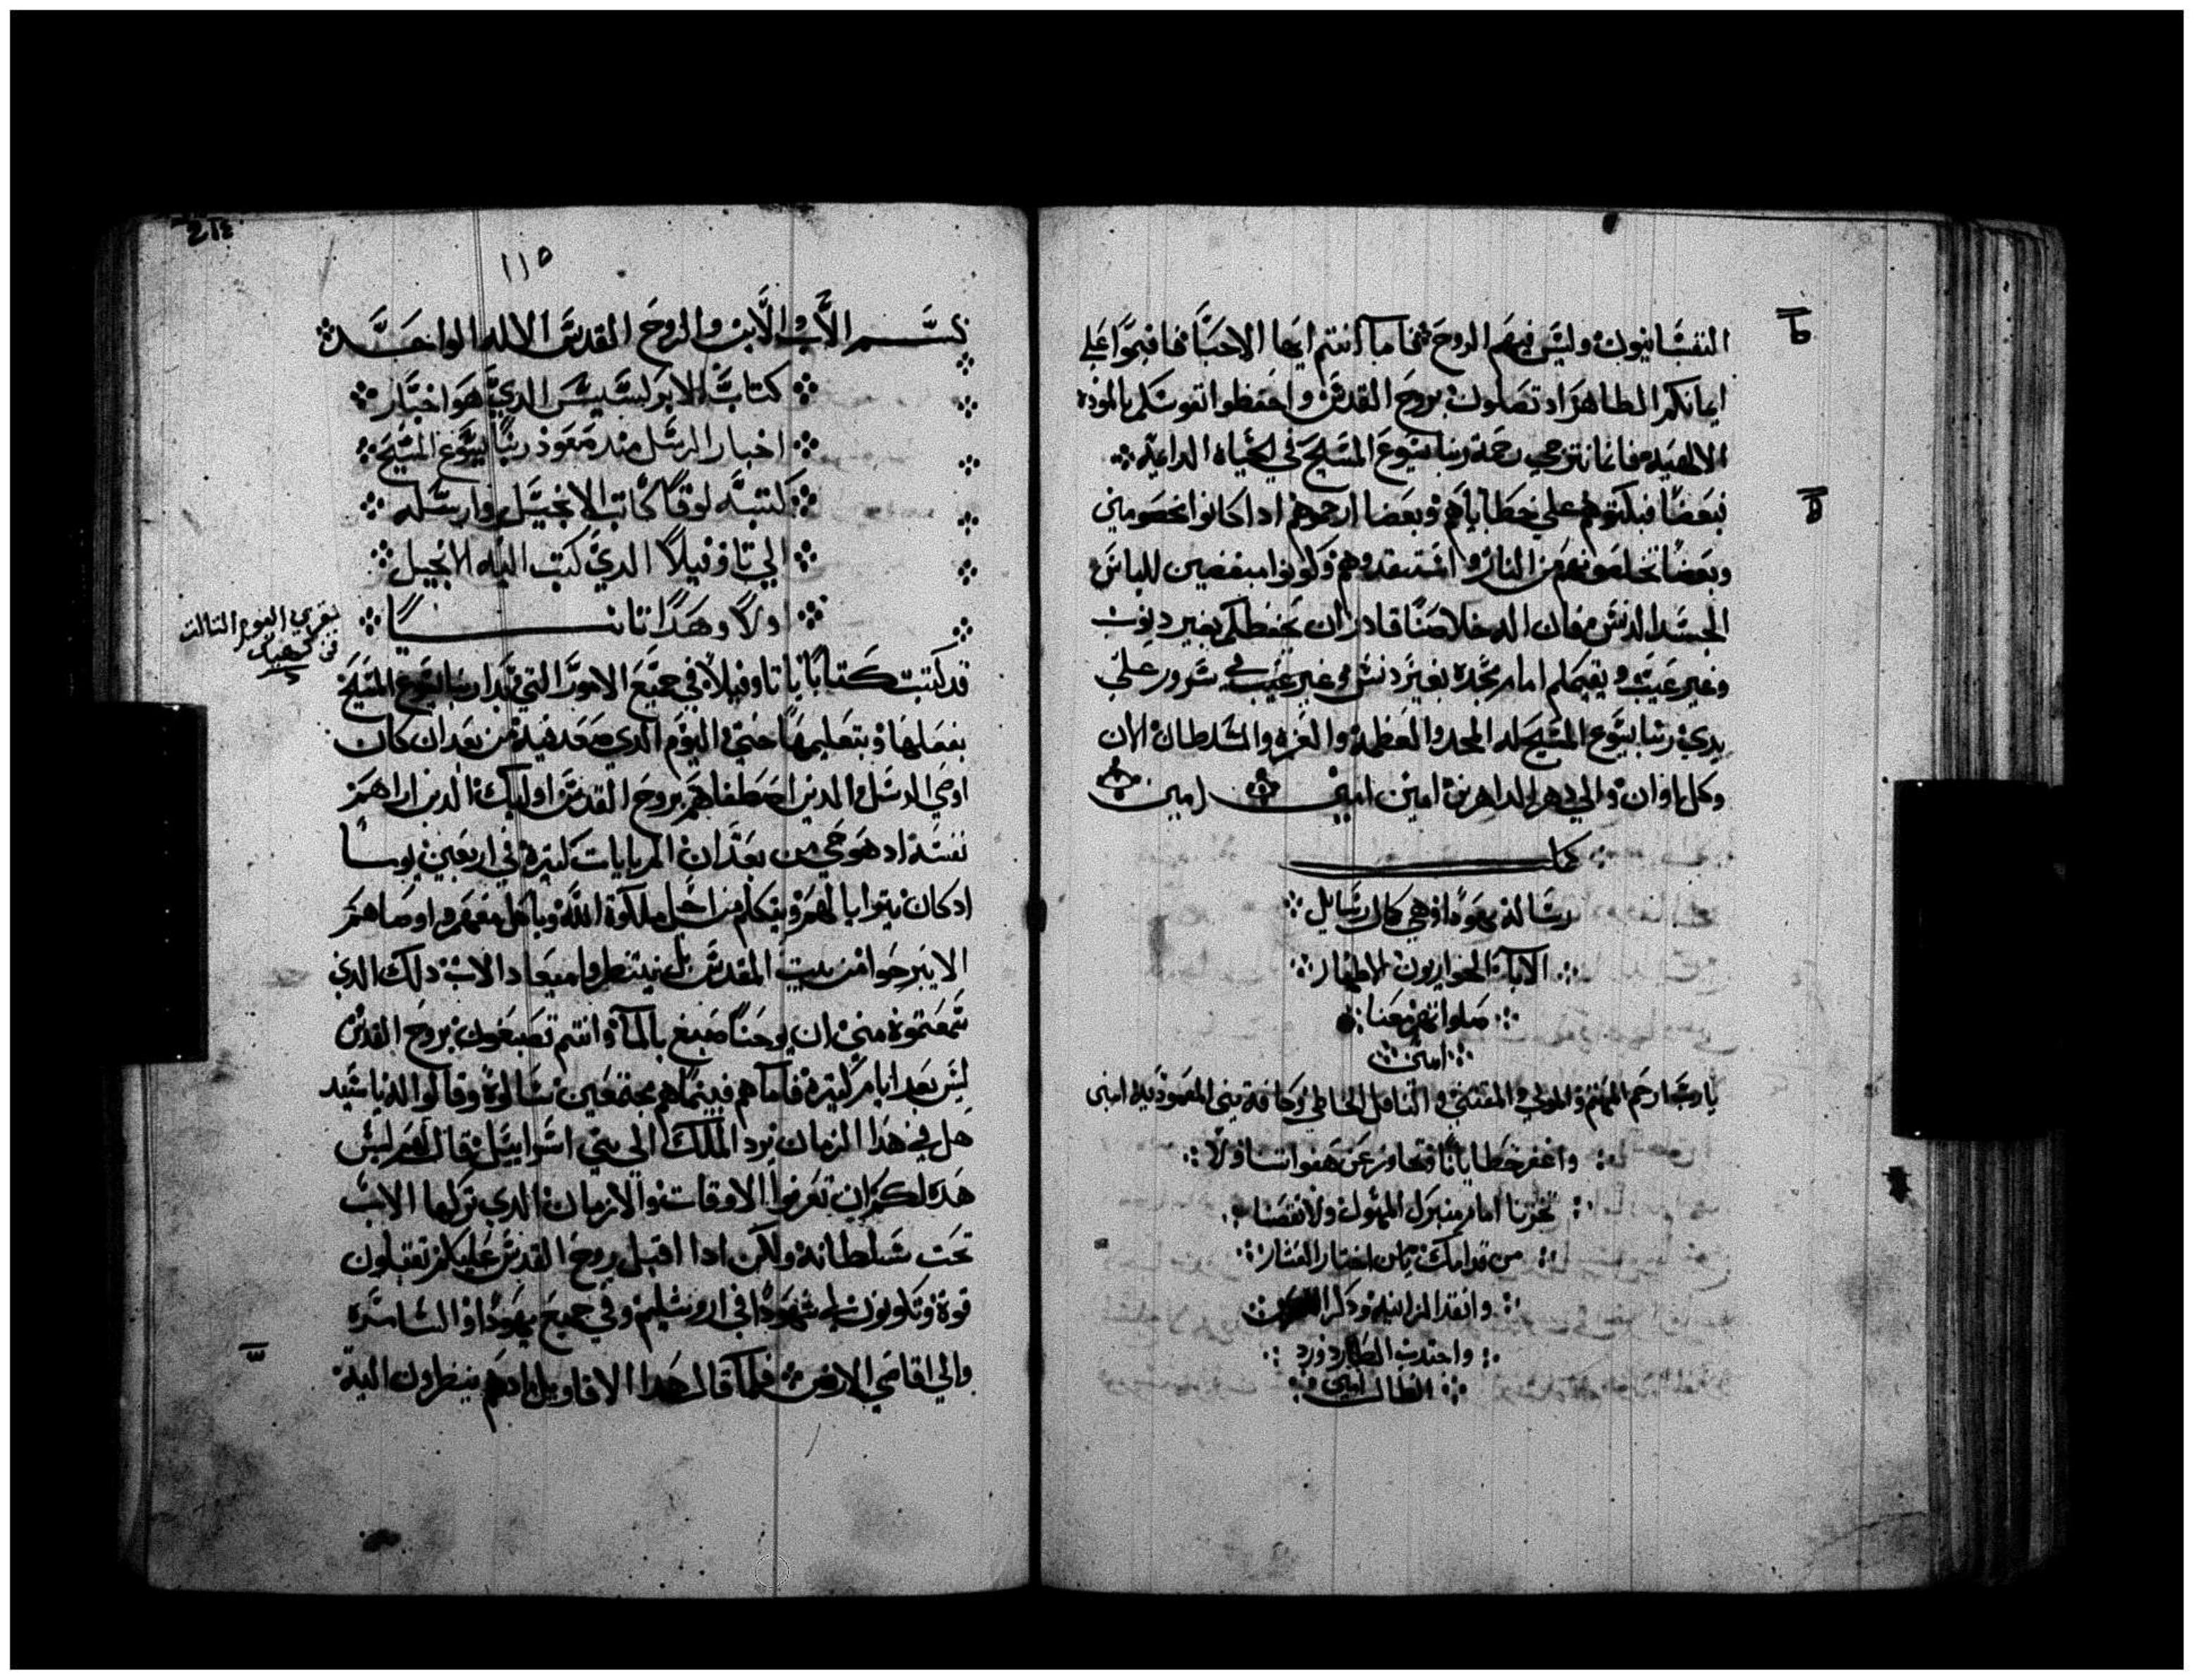 النفسانيون وليس فيهم الروح فاما انتم ايها الاحبا فاقيموا علي
ايمانكم الطاهر اد تصلون بروح القدس واحفظوا نفوسكم بالموده
الالهيه فاننا نترجي رحمة ربنا يسوع المسيح في الحياه الدايمه
فبعضا فبكتوهم علي خطاياهم وبعضا ارحموهم ادا كانوا مخصومين
وبعضا تخلصونهم من النار واستنقدوهم وكونوا مبغضين للباس
الجسد الدنس فان الله مخلصنا قادر ان يحفظكم بغير ديوب
وغير عيب ويقيمكم امام مجده بغير دنس وغير عيب في سرور علي
يدي ربنا يسوع المسيح له المجد والعظمه والعزه والسلطان الان
وكل اوان والي دهر الداهرين امين امين امين
كملت
رسالة يهودا وهي كمال رسايل
الابا الحواريون الاطهار
صلواتهم معنا
امين
يارب ارحم المهتم والمولي والمقتني والناقل الخاطي وكافة بني المعموديه امين
واغفر خطايانا وتجاوز عن هفواتنا ولا
تخزنا امام منبرك المهول ولا تقصنا
من قدامك يامن اختار العشار
وانقد الزانيه ودكر
واجتدب الطارد ورد
الضال امين
ط
115
بسم الاب والابن والروح القدس الاله الواحد
كتاب الابركسيس الدي هو اخبار
اخبار الرسل مند صعود ربنا يسوع المسيح
كتبه لوقا كاتب الانجيل وارسله
الي تاوفيلا الدي كتب اليه الانجيل
اولا وهدا تانيا
يقري اليوم التالت
قد كتبت كتابا يا تاوفيلا في جميع الامور التي بدا ربنا يسوع المسيح
بفعلها وبتعليمها حتي اليوم الدي صعد فيه من بعد ان كان
اوصي الرسل الدين اصطفاهم بروح القدس اوليك الدين اراهم
نفسه اد هو حي من بعد ان الم بايات كتيره في اربعين يوما
اد كان يترايا لهم ويتكلم من اجل ملكوة الله وياكل معهم واوصاهم
الا يبرحوا من بيت المقدس بل ينتظروا ميعاد الاب دلك الدي
سمعتموه مني ان يوحنا صبغ بالما وانتم تصبغون بروح القدس
ليس بعد ايام كتيره فاما هم فبينما هم مجتمعين سالوه وقالوا له يا سيد
هل في هدا الزمان ترد الملك الي بني اسراييل فقال لهم ليس
هده لكم ان تعرفوا الاوقات والازمان الدي تركها الاب
تحت سلطانه ولكن ادا اقبل روح القدس عليكم تقبلون
قوة وتكونون لي شهودا في اروشليم وفي جميع يهودا والسامره
والي اقاصي الارض فلما قال هدا الاقاويل اد هم ينظرون اليه